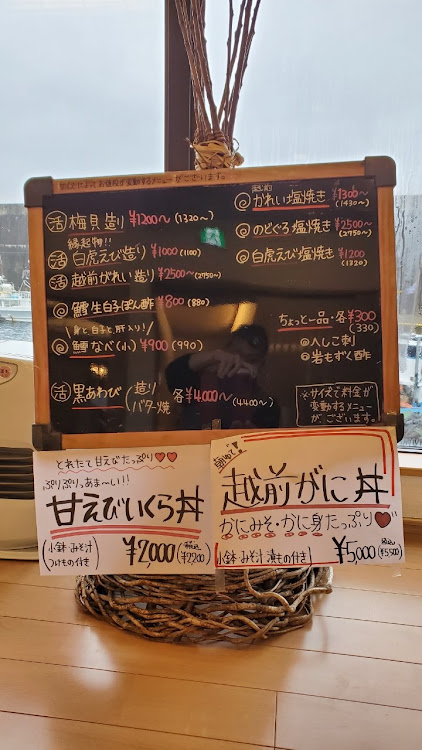 によってお値段が変動するメニューがございます。
活 梅貝造り ¥1200〜 (1320〜)
縁起物!!
活 白虎えび造り ¥1000 (1100)
活 越前がれい造り ¥2500〜 (2750〜)
◎ 鱈生白子ぽん酢 ¥800 (880)
身と白子と肝入り!
◎ 鱈なべ(小) ¥900 (990)
活 黒あわび (造り バター焼 各¥4,000〜 (4400〜)
越前
◎ かれい塩焼き ¥1300〜 (1430〜)
◎ のどぐろ塩焼き ¥2500〜 (2750〜)
◎ 白虎えび塩焼き ¥1200 (1320)
ちょっと一品・各¥300 (330)
◎ へしこ刺
◎ 岩もずく酢
※サイズで料金が
変動するメニュー
がございます。
とれたて甘えびたっぷり♥♥
ぷりぷりっあま〜い!!
甘えびいくら丼
(小鉢・みそ汁
つけもの付き)
¥2,000 (税込 ¥2,200)
越前がに丼
かにみそ・かに身たっぷり♥
(小鉢・みそ汁・漬もの付き) ¥5,000 (税込 ¥5,500)